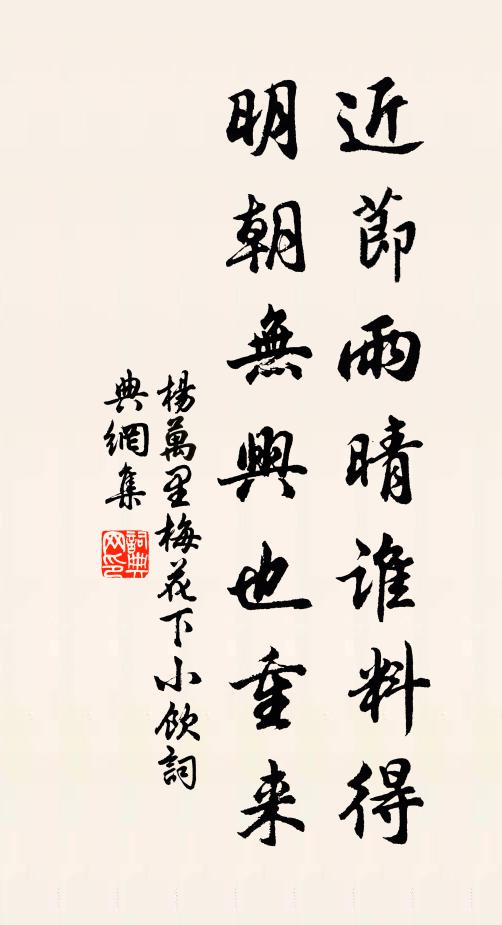 近節雨晴誰料得
明朝無興也重来
楊萬里梅花下小飲詞
典網集
詞典网印